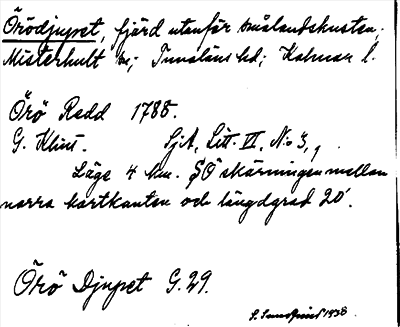 Örödjupet, fjärd utanför smålandskusten;
Misterhult sn; Tunaläns hd; Kalmar l.
Örö Redd 1788.
G. Klint. SjA, Litt. VI, No 3,
Läge 4 km. SO skärningen mellan
norra kartkanten och längdgrad 20'.
Örö Djupet G. 29.
S. 1938